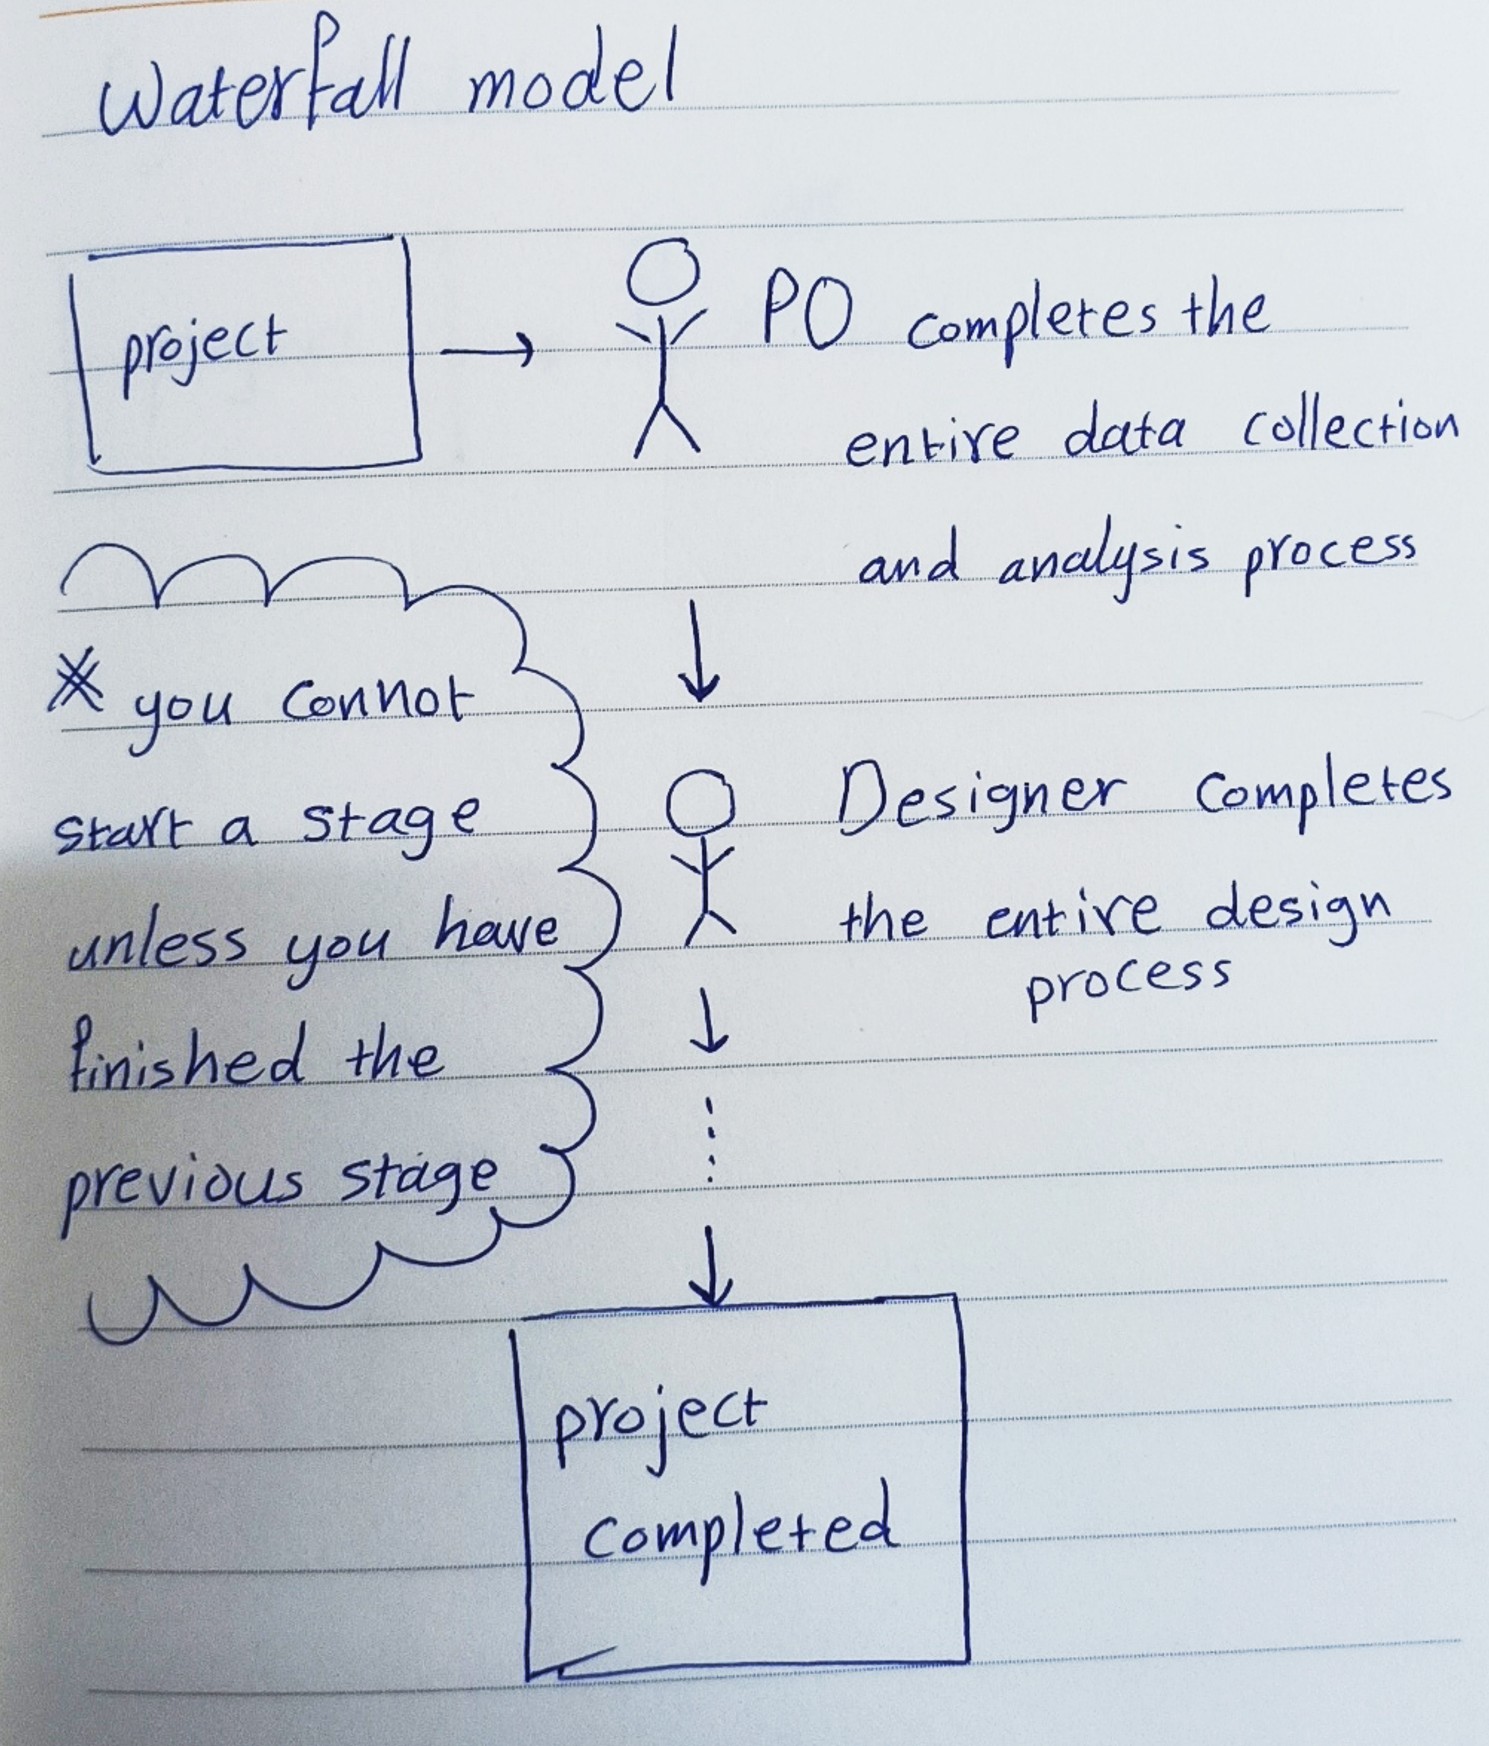 Waterfall model
project
PO completes the
entire data collection
and analysis process
* you connot
start a stage
unless you have
finished the
previous stage
Designer completes
the entire design
process
project
completed